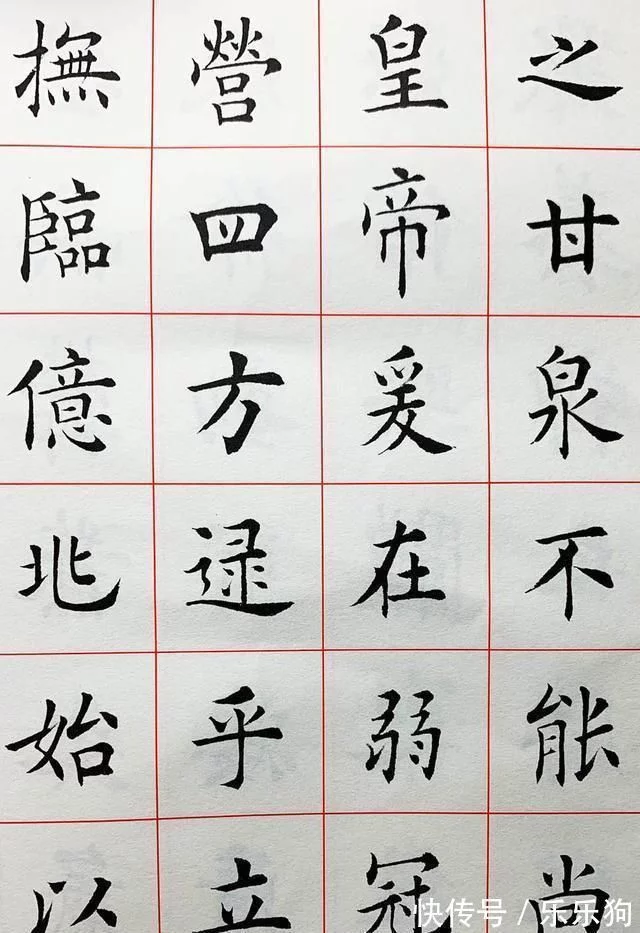 之甘泉不能尚
皇帝爰在弱冠
營四方逮乎立
撫臨億兆始以
快传号 / 乐乐狗